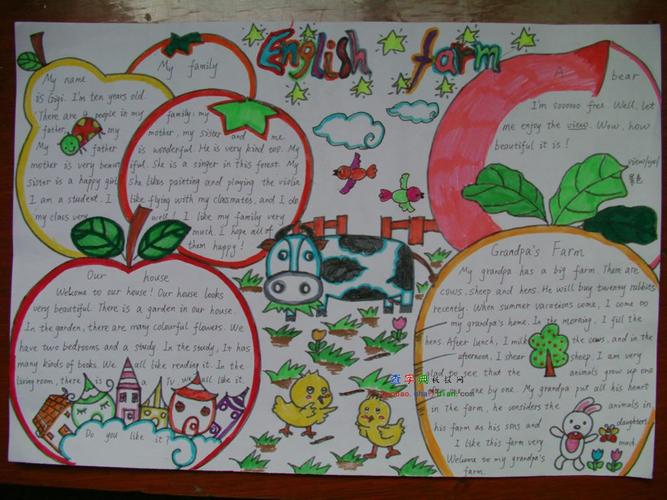 English farm
My name
is Gigi. I'm ten years old.
There are people in my
father, my
My father
mother is very beaut
sister is a happy girl
I am a student. I
my class very
My family
family: my
mother, my sister and me
is wonderful. He is very kind too. My
iful. She is a singer in this forest. My
She likes painting and playing the violin
like flying with my classmates, and I do
well! I like my family very
much. I hope all of
them happy!
A bear
I'm soooooo free. Well, let
me enjoy the view. Wow, how
beautiful it is!
view/vju:/
景色
Our house
Welcome to our house! Our house looks
very beautiful. There is a garden in our house.
In the garden, there are many colourful flowers. We
have two bedrooms and a study. In the study, It has
many kinds of books. We all like reading it. In the
living room, there is a TV, we all like it.
Do you like it?
Grandpa's Farm
My grandpa has a big farm. There are
cows, sheep and hens. He will buy twenty rabbits
recently. When summer vacations come, I come to
my grandpa's home. In the morning, I fill the
hens. After lunch, I milk the cows, and in the
afternoon, I shear sheep. I am very
glad to see that the animals grow up one
by one. My grandpa put all his heart
in the farm, he considers the animals in
his farm as his sons and daughters.
I like this farm very much.
Welcome to my grandpa's
farm.